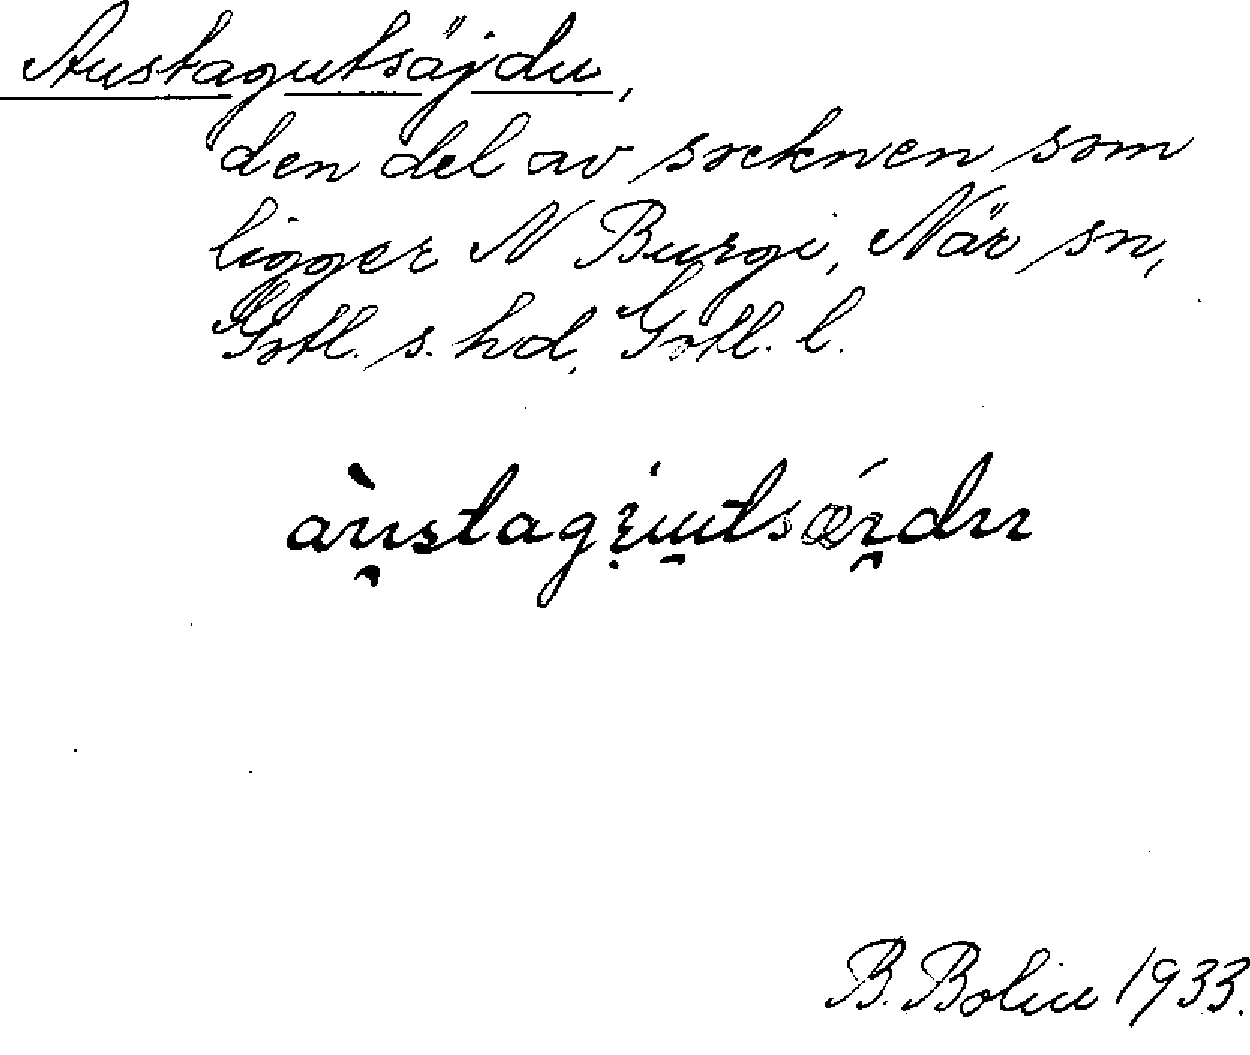 Austagutsäjdu,
den del av socknen som
ligger N Burgi, När sn,
Gotl. s. hd, Gotl. l.
B. Bolin 1933.